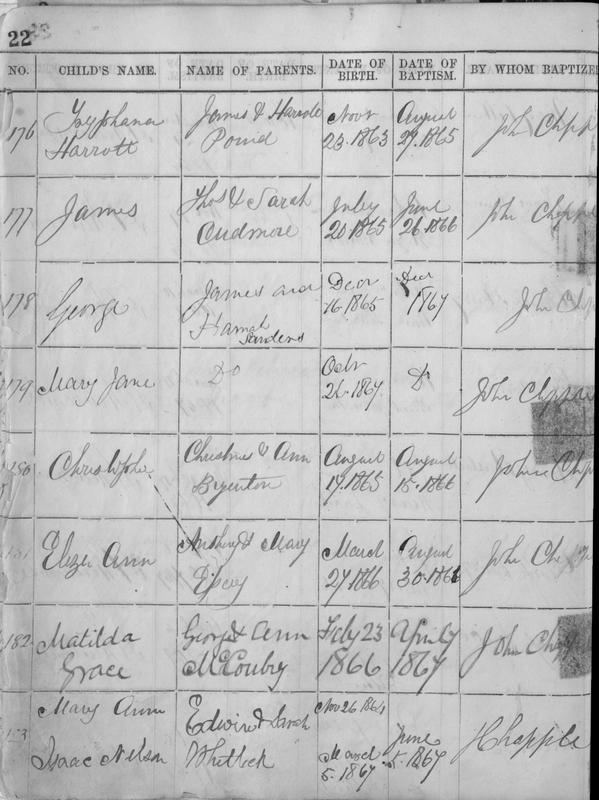 22
NO.
CHILD'S NAME.
NAME OF PARENTS.
DATE OF BIRTH.
DATE OF BAPTISM.
BY WHOM BAPTIZE
176
Harrott
James & Harriote
Pound
Novr
23. 1863
August
29. 1865
Joh Chpp
177
James
Thos & Sarah
Cudmore
Juley
20 1865
June
26 1866
John Chepp
178
George
James and
Hannah
Sanders
Decr
16. 1865
Decr
1867
John Ch
179
Mary Jane
Do
Octbr
26. 1867
Do
John Chppl
180
Christophe
& Ann
August
17. 1865
August
15. 1866
John Chp
181
Elizer Ann
Anthony & Mary
March
27 1866
August
30. 1866
John Che
182
Matilda
Grace
George & Ann
McCoubry
Feby 23
1866
1867
John Chap
Mary Ann
Isaac Nelson
Edwin & Sarah
Whitlock
Nov 26 1864
March
5. 1867
June
5. 1867
J Chapple